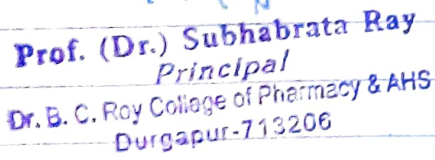 Prof. (Dr.) Subhabrata Ray
Principal
Dr. B. C. Roy College of Pharmacy & AHS
Durgapur-713206